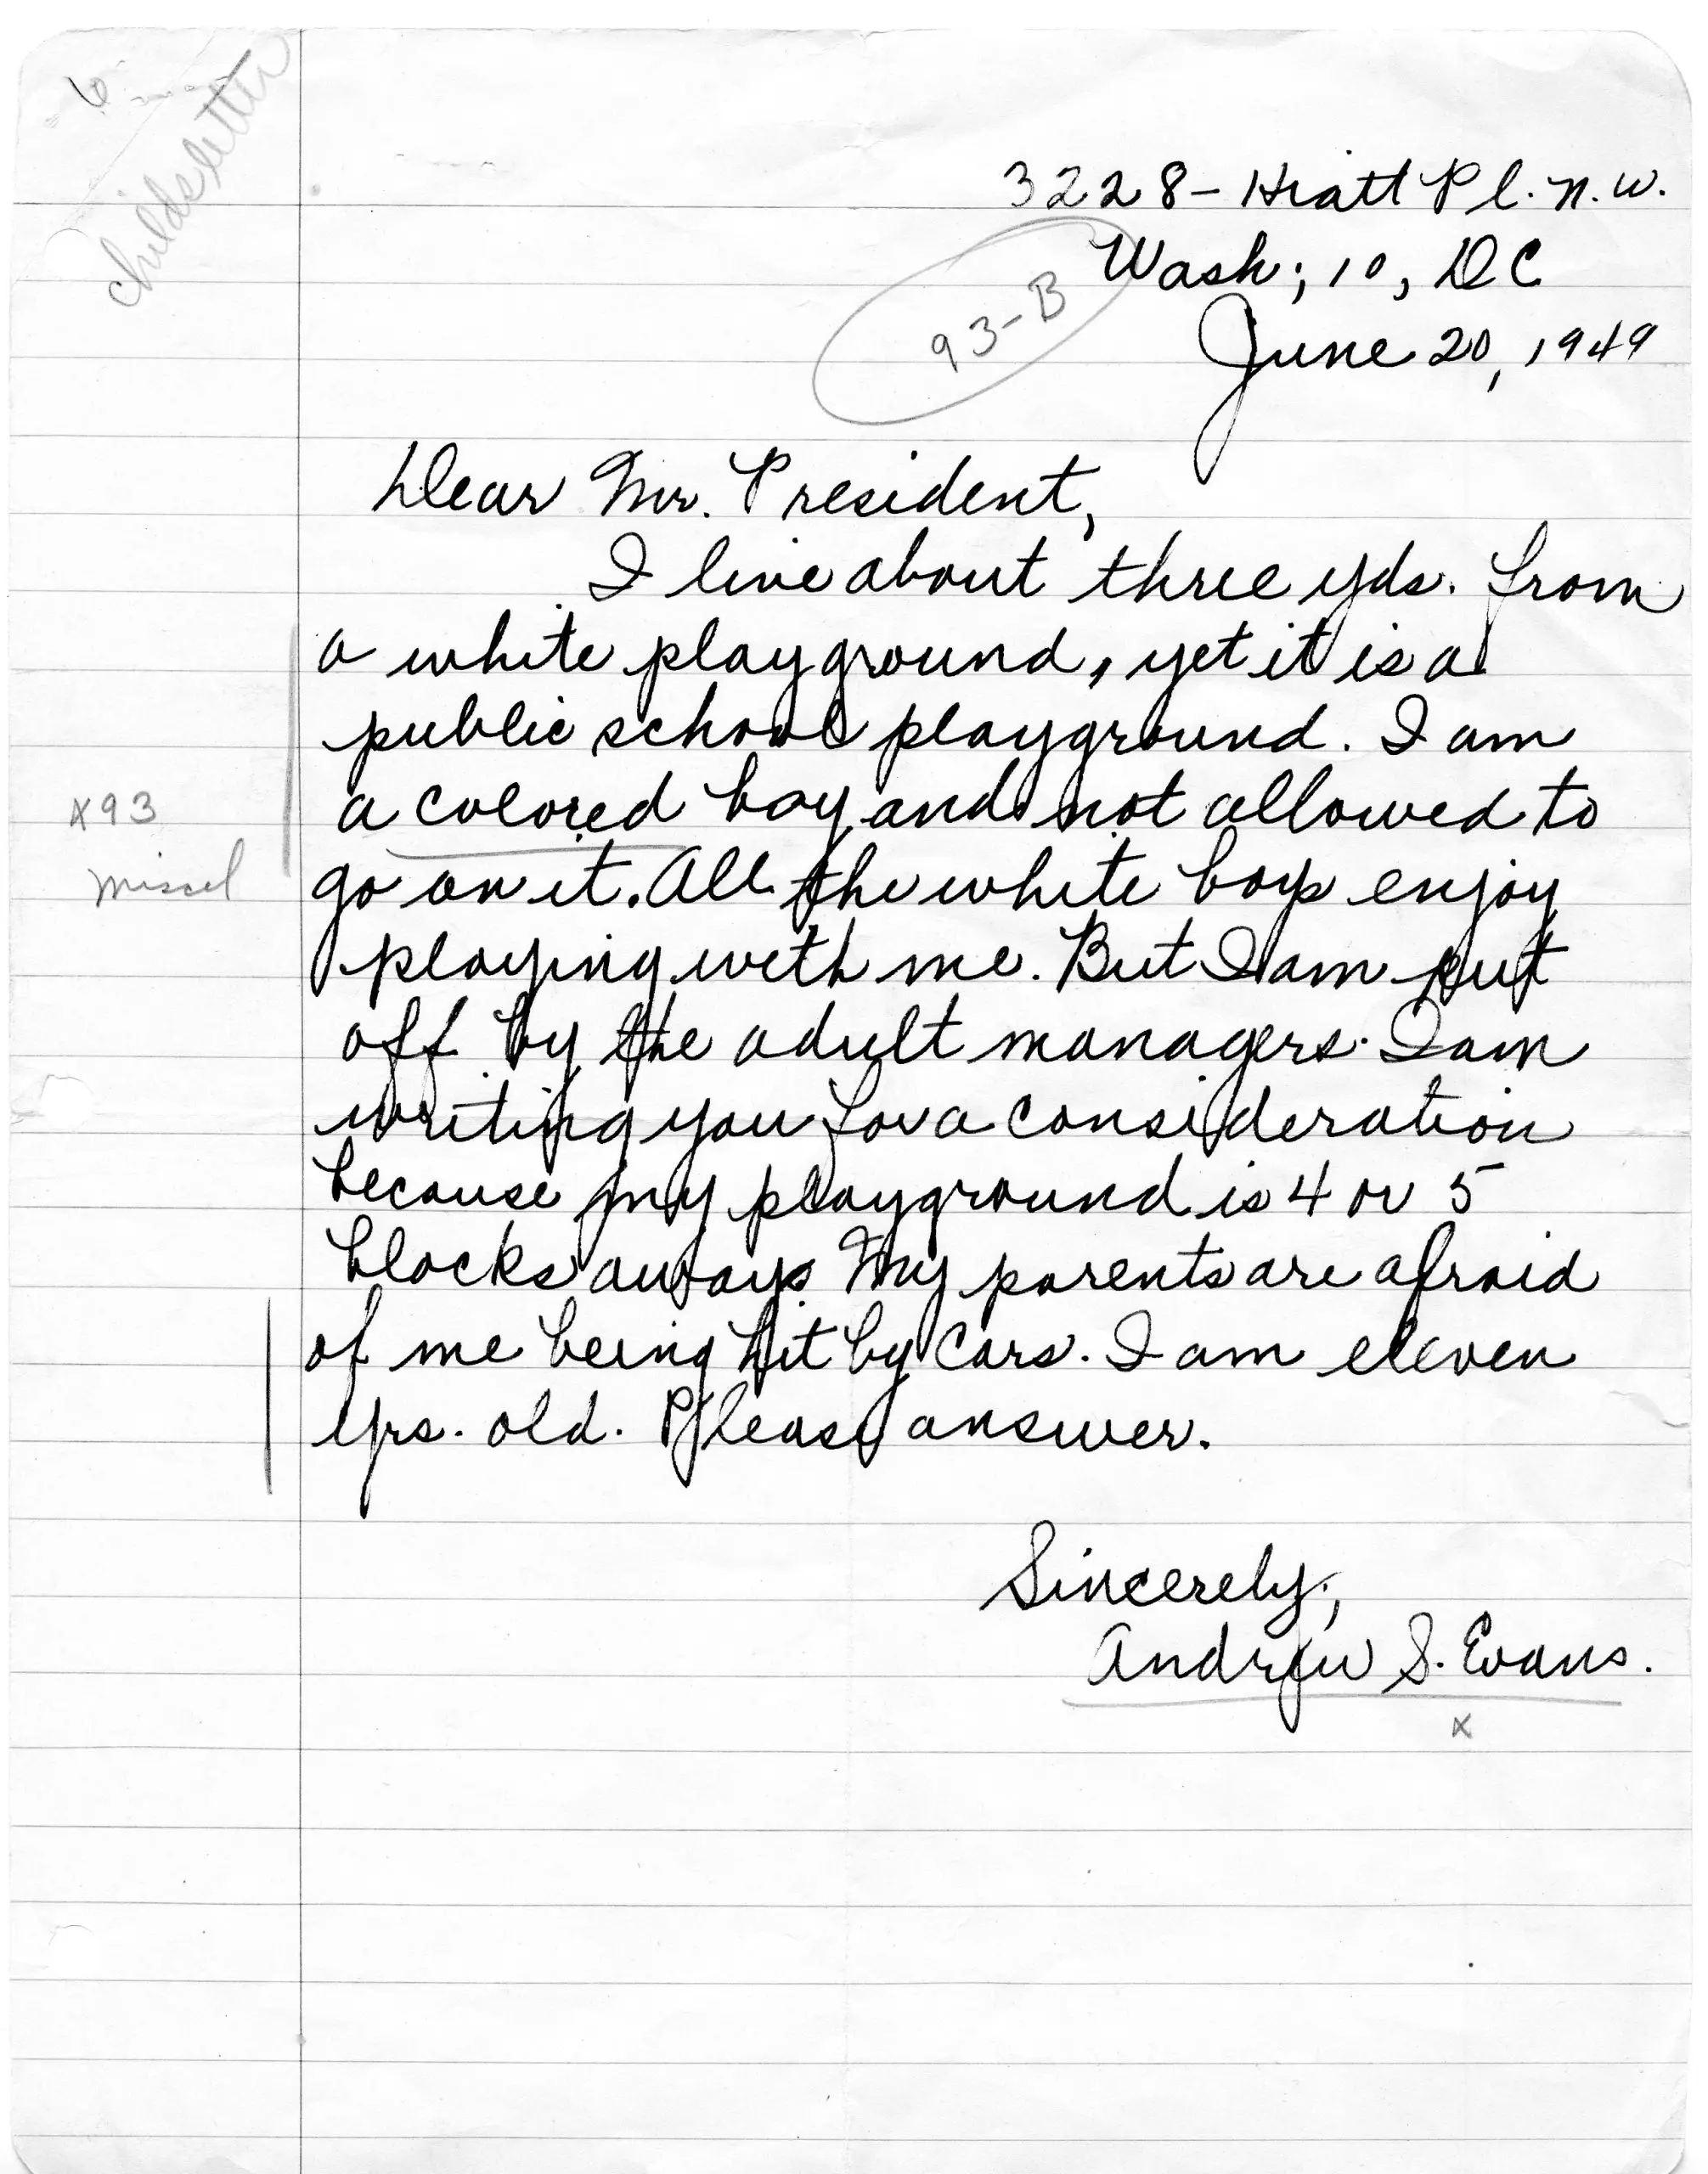 childs letter
3228- Hiatt Pl. N.W.
Wash; 10, DC
93-B
June 20, 1949
Dear Mr. President,
I live about three yds. from
a white playground, yet it is a
public school playground. I am
a colored boy and not allowed to
x93
go on it. All the white boys enjoy
miscel
playing with me. But I am put
off by the adult managers. I am
writing you for a consideration
because my playground is 4 or 5
blocks aways My parents are afraid
of me being hit by cars. I am eleven
yrs. old. Please answer.
Sincerely,
Andrew S. Evans.
x